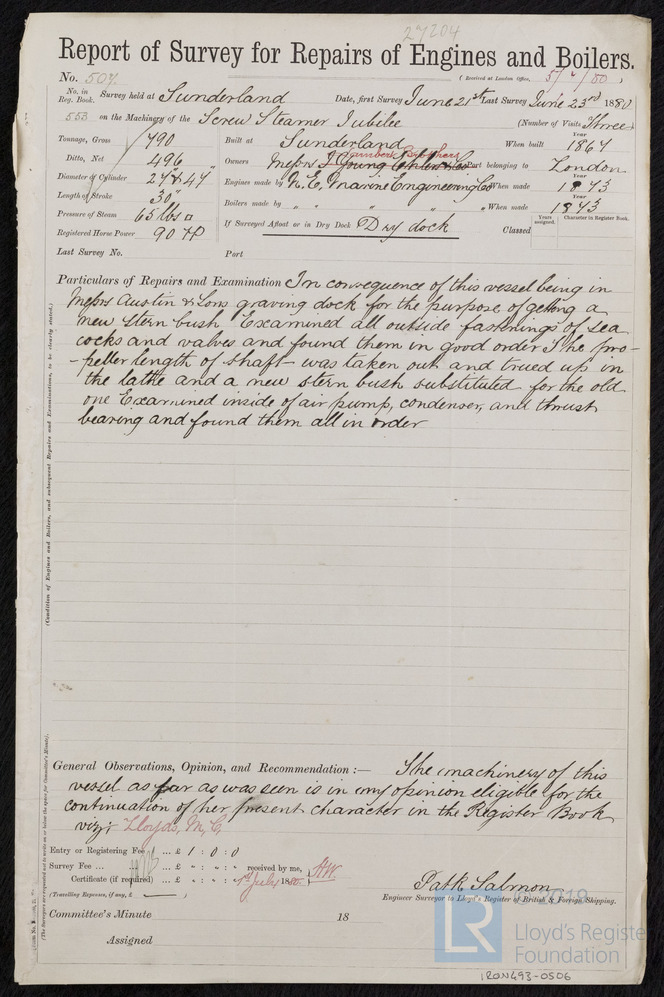 27204
Report of Survey for Repairs of Engines and Boilers.
No. 507. (Received at London Office, 5/7/80)
No. in Reg. Book. Survey held at Sunderland Date, first Survey June 21st Last Survey June 23rd 1880
553 on the Machinery of the Screw Steamer Jubilee (Number of Visits Three)
Tonnage, Gross 790 Built at Sunderland When built Year 1867
Ditto, Net 496 Owners Messrs J Young Brothers Port belonging to London
Diameter of Cylinder 24 & 47 Engines made by N. E. Marine Engineering Co When made Year 1873
Length of Stroke 30" Boilers made by " " " " When made Year 1873
Pressure of Steam 65 lbs If Surveyed Afloat or in Dry Dock Dry dock Classed Years assigned. Character in Register Book.
Registered Horse Power 90 HP
Last Survey No. Port
Particulars of Repairs and Examination In consequence of this vessel being in
Messrs Austin & Sons graving dock for the purpose of getting a
new stern bush Examined all outside fastenings of sea
cocks and valves and found them in good order The pro-
-peller length of shaft was taken out and trued up in
the lathe and a new stern bush substituted for the old
one Examined inside of air pump, condenser, and thrust
bearing and found them all in order
(Condition of Engines and Boilers, and subsequent Repairs and Examinations, to be clearly stated.)
General Observations, Opinion, and Recommendation :— The machinery of this
vessel as far as was seen is in my opinion eligible for the
continuation of her present character in the Register Book
viz; Lloyds, M, C,
Entry or Registering Fee ... £ 1 : 0 : 0
Survey Fee ... ... £ " : " : " received by me,
Certificate (if required) ... £ " : " : " 1st July 1880
(Travelling Expenses, if any, £ — )
Patk Salmon
Engineer Surveyor to Lloyd's Register of British & Foreign Shipping.
Committee's Minute 18
Assigned
© 2019
LR
Lloyd's Register
Foundation
IRON493-0506